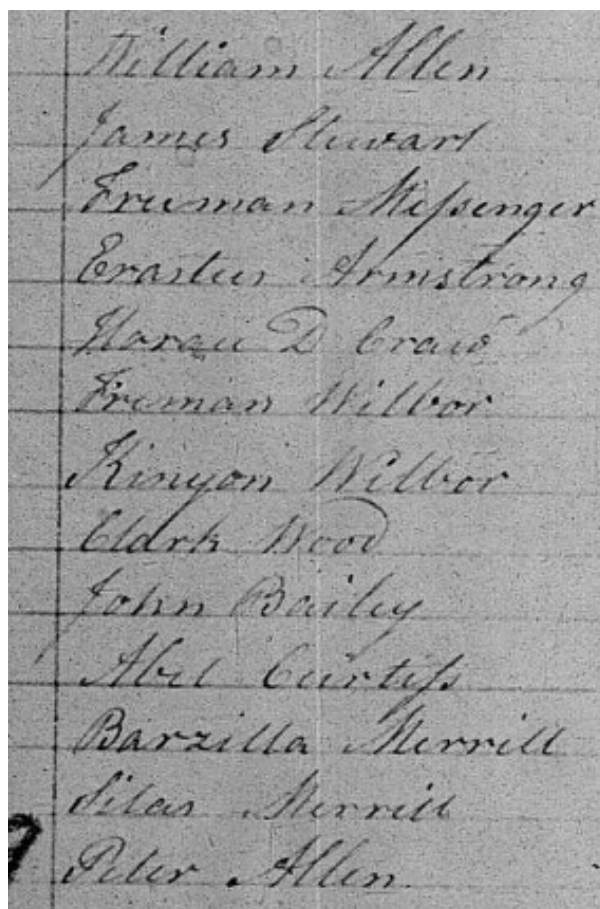 William Allen
James Stewart
Freeman Meſsenger
Erastus Armstrong
Horace D Craw
Freeman Wilbor
Kinyon Wilbor
Clark Wood
John Bailey
Abel Curtiſs
Barzilla Merrill
Silas Merrill
Peter Allen